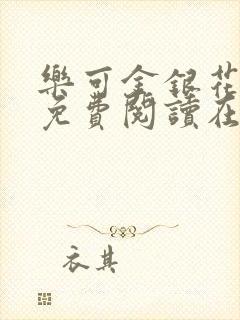 樂可金銀花
免費閱讀在
衣其